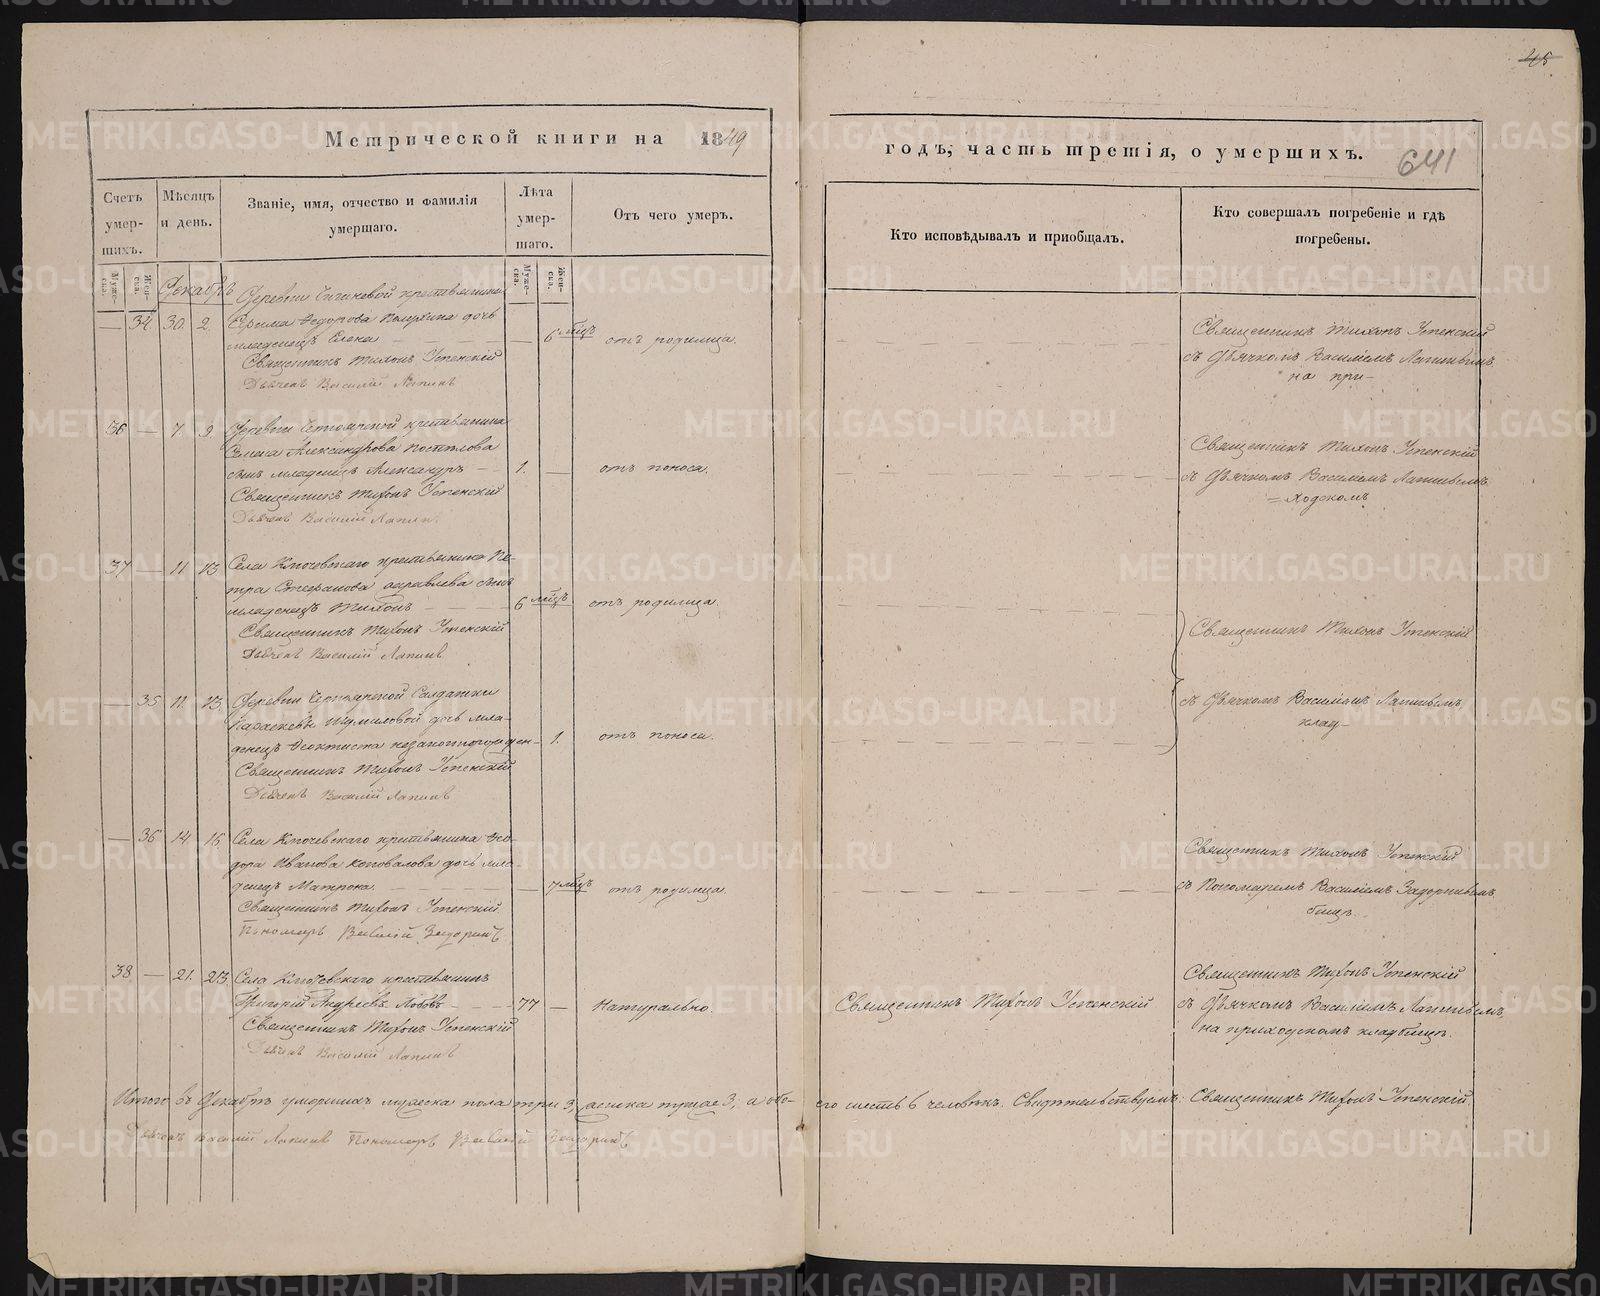 45
641
Метрической книги на 1849
годъ, часть третія, о умершихъ.
Счетъ умер-шихъ.
Мѣсяцъ и день.
Званіе, имя, отчество и фамилія умершаго.
Лѣта умер-шаго.
Отъ чего умеръ.
Кто исповѣдывалъ и приобщалъ.
Кто совершалъ погребеніе и гдѣ погребены.
Муже-ска.
Жен-ска.
Муже-ска.
Жен-ска.
Декабрь
Деревни крестьянина
— 34 30. 2.
Ѳедорова дочь
младенецъ Елена — 6 мѣцъ отъ родимца.
Священникъ Тихонъ Успенскій
Дьячекъ Василій Лапинъ
Священникъ Тихонъ Успенскій
съ Дьячкомъ Василіемъ Лапинымъ
на при-
36 — 7. 9. Деревни крестьянина
Семена Александрова Постѣлова
сынъ младенецъ Александръ — 1. — отъ поноса.
Священникъ Тихонъ Успенскій
Дьячекъ Василій Лапинъ
Священникъ Тихонъ Успенскій
съ Дьячкомъ Василіемъ Лапинымъ
=ходскомъ
37 — 11 13 Села Ключевскаго крестьянина Пе-
тра Стефанова сынъ
младенецъ Тихонъ — 6 мѣцъ отъ родимца.
Священникъ Тихонъ Успенскій
Дьячекъ Василій Лапинъ
Священникъ Тихонъ Успенскій
— 35 11. 13. Деревни Солдатки
Параскевы Шумиловой дочь мла-
денецъ Ѳеоктиста незаконнорожден- 1. отъ поноса.
Священникъ Тихонъ Успенскій
Дьячекъ Василій Лапинъ
съ Дьячкомъ Василіемъ Лапинымъ
клад-
— 36 14. 16 Села Ключевскаго крестьянина Ѳео-
дора Иванова Коновалова дочь мла-
денецъ Матрона. — 7 мѣцъ отъ родимца.
Священникъ Тихонъ Успенскій
Пономарь Василій Задоринъ
Священникъ Тихонъ Успенскій
съ Пономаремъ Василіемъ Задоринымъ
бищѣ.
38 — 21. 23 Села Ключевскаго крестьянинъ
Григорій Андреевъ Лобовъ — 77 — Натурально.
Священникъ Тихонъ Успенскій
Дьячекъ Василій Лапинъ
Священникъ Тихонъ Успенскій
Священникъ Тихонъ Успенскій
съ Дьячкомъ Василіемъ Лапинымъ,
на приходскомъ кладбищѣ.
Итого въ Декабрѣ умершихъ мужеска пола три 3, женска трое 3, а обо-
его шесть 6 человѣкъ. Свидѣтельствуемъ: Священникъ Тихонъ Успенскій
Дьячекъ Василій Лапинъ Пономарь Василій Задоринъ
METRIKI.GASO-URAL.RU